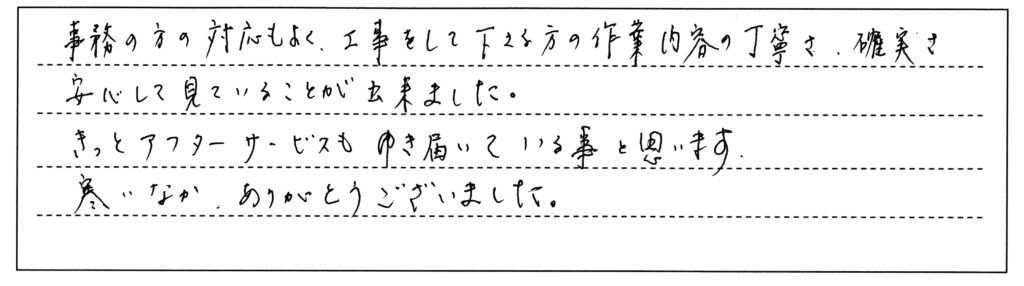 事務の方の対応もよく、工事をして下さる方の作業内容の丁寧さ、確実さ
安心して見ていることが出来ました。
きっとアフターサービスもゆき届いている事と思います。
寒いなか、ありがとうございました。